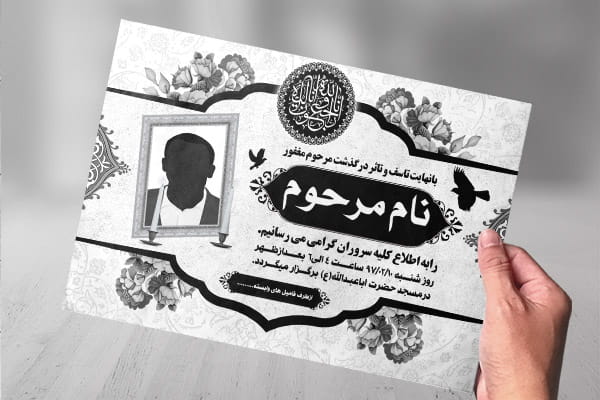 انا لله و انا الیه راجعون
با نهایت تاسف و تاثر درگذشت مرحوم مغفور
نام مرحوم
را به اطلاع کلیه سروران گرامی می رسانیم.
روز شنبه ۹۷/۰۲/۱۰ ساعت ۴ الی ۶ بعدازظهر
در مسجد حضرت اباعبدالله(ع) برگزار میگردد.
ازطرف فامیل های وابسته........